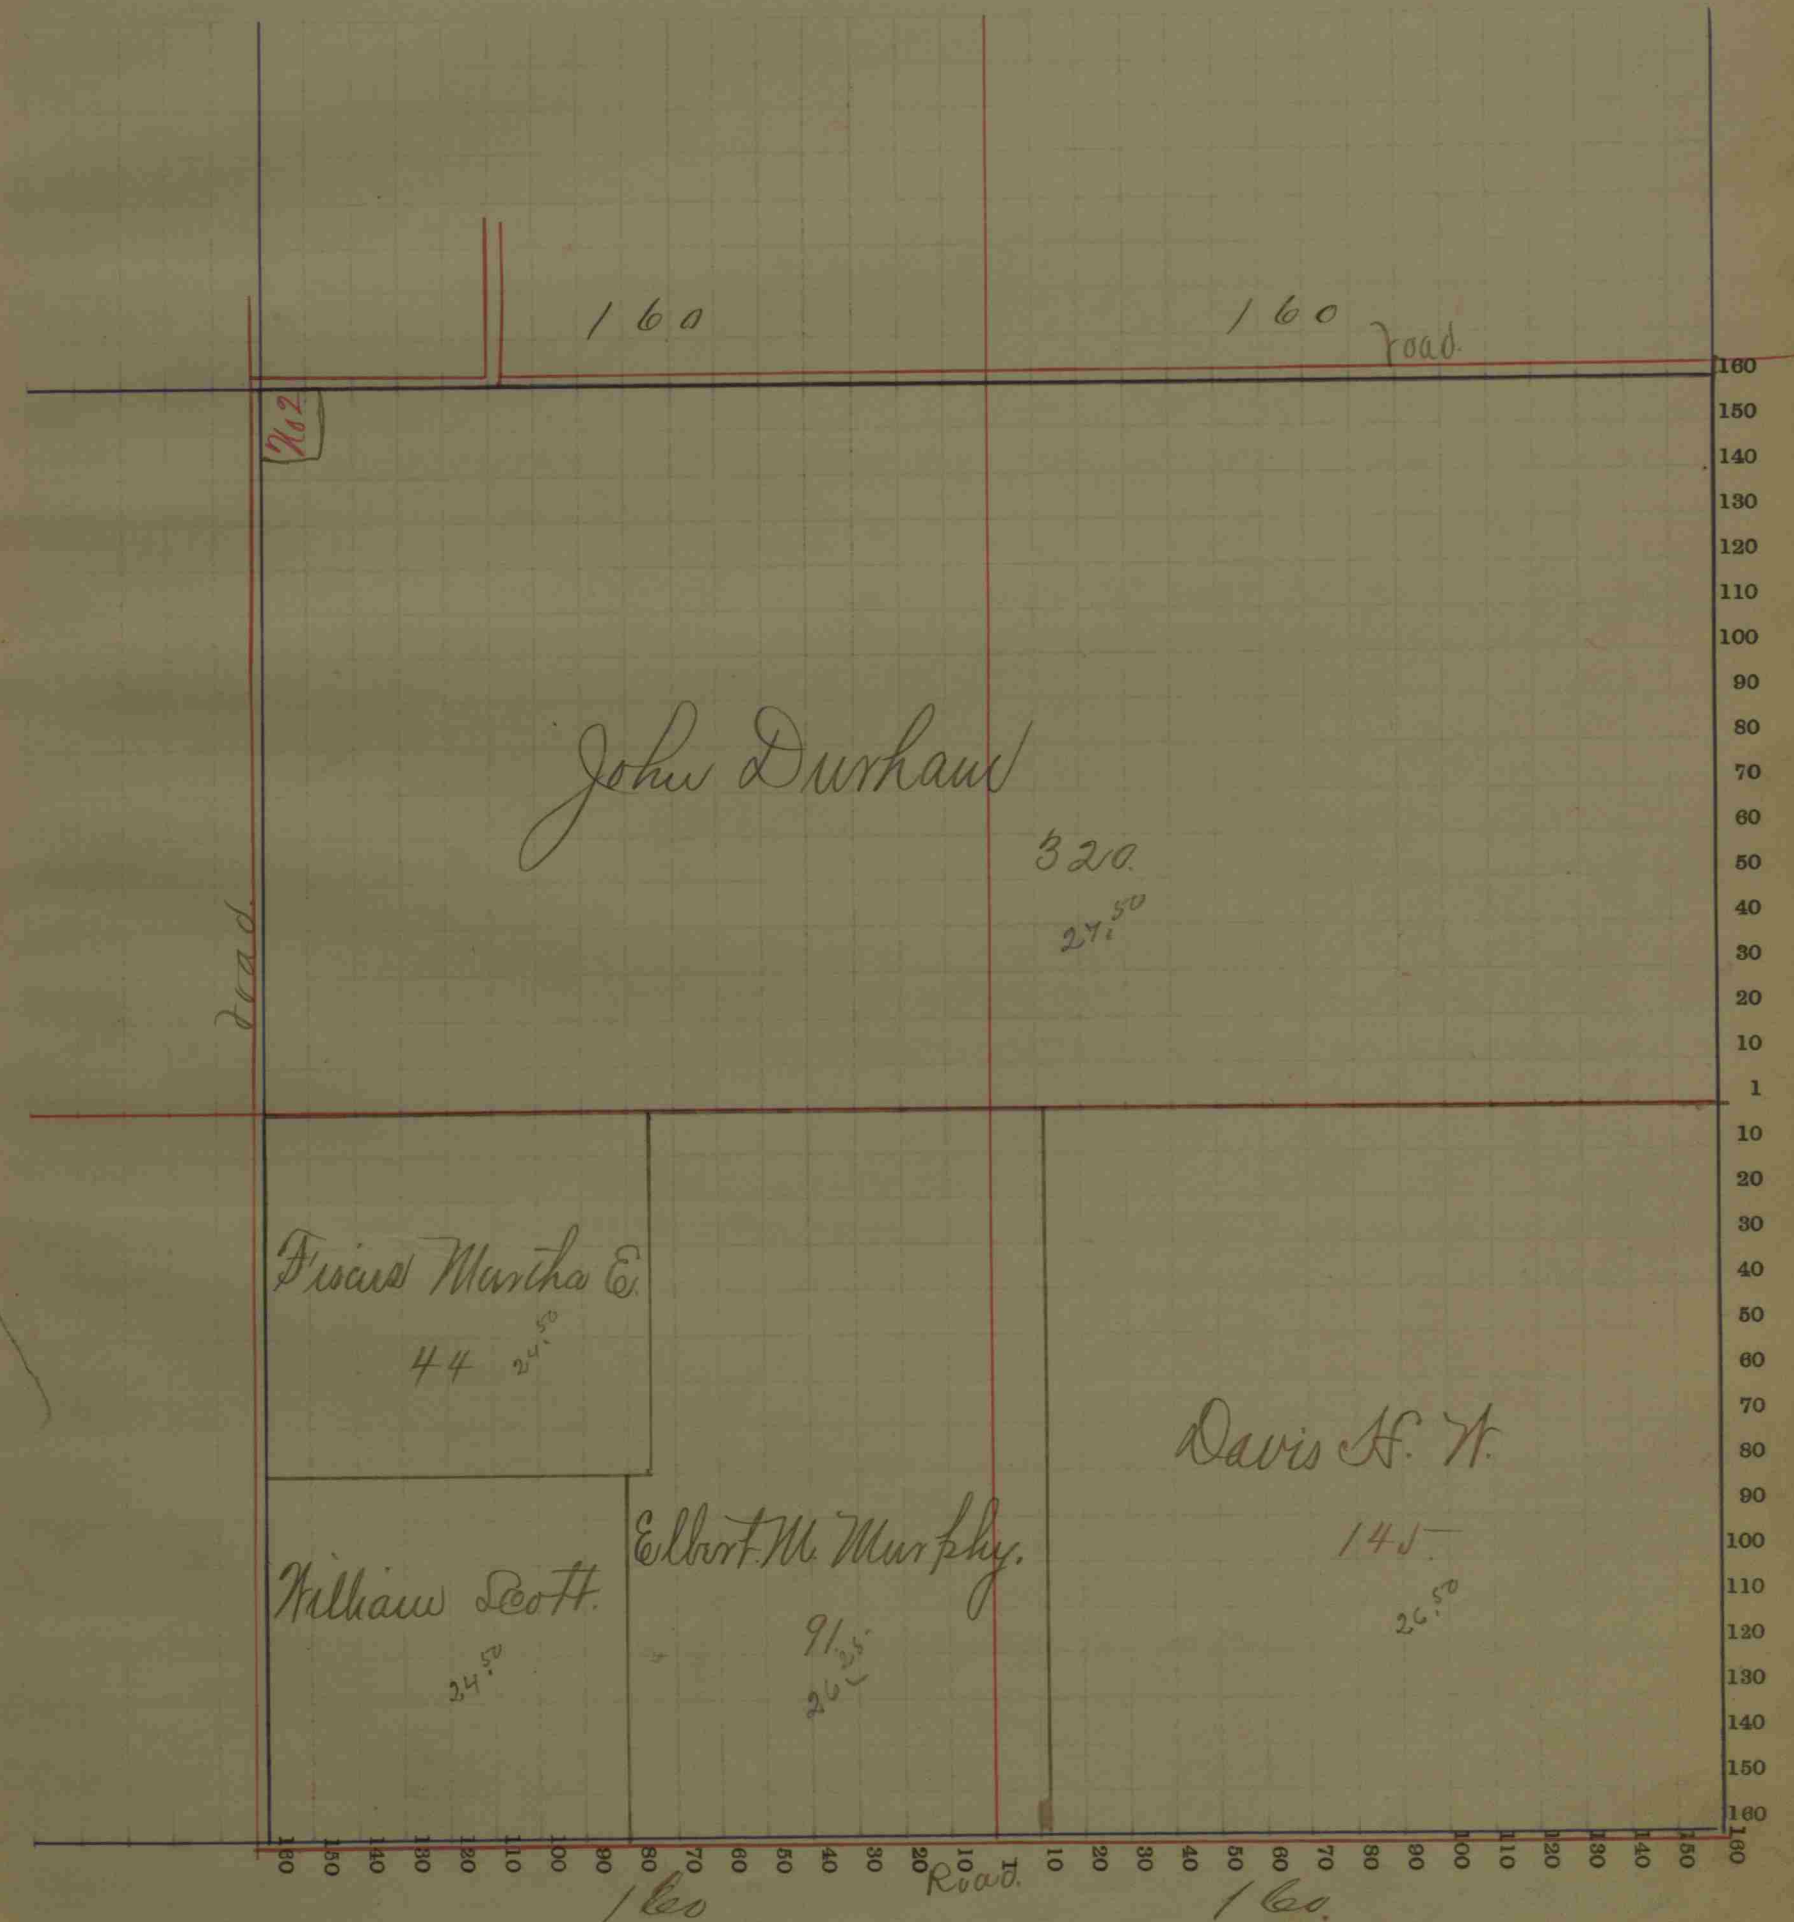 160
160
road.
No 2
John Durham
320.
27.50
road.
Martha E.
44
24.50
Davis H. W.
145
26.50
Elbert M. Murphy.
91.25
26
William Scott.
24.50
160
150
140
130
120
110
100
90
80
70
60
50
40
30
20
10
1
10
20
30
40
50
60
70
80
90
100
110
120
130
140
150
160
160 150 140 130 120 110 100 90 80 70 60 50 40 30 20 10 1 10 20 30 40 50 60 70 80 90 100 110 120 130 140 150 160
Road.
160
160.